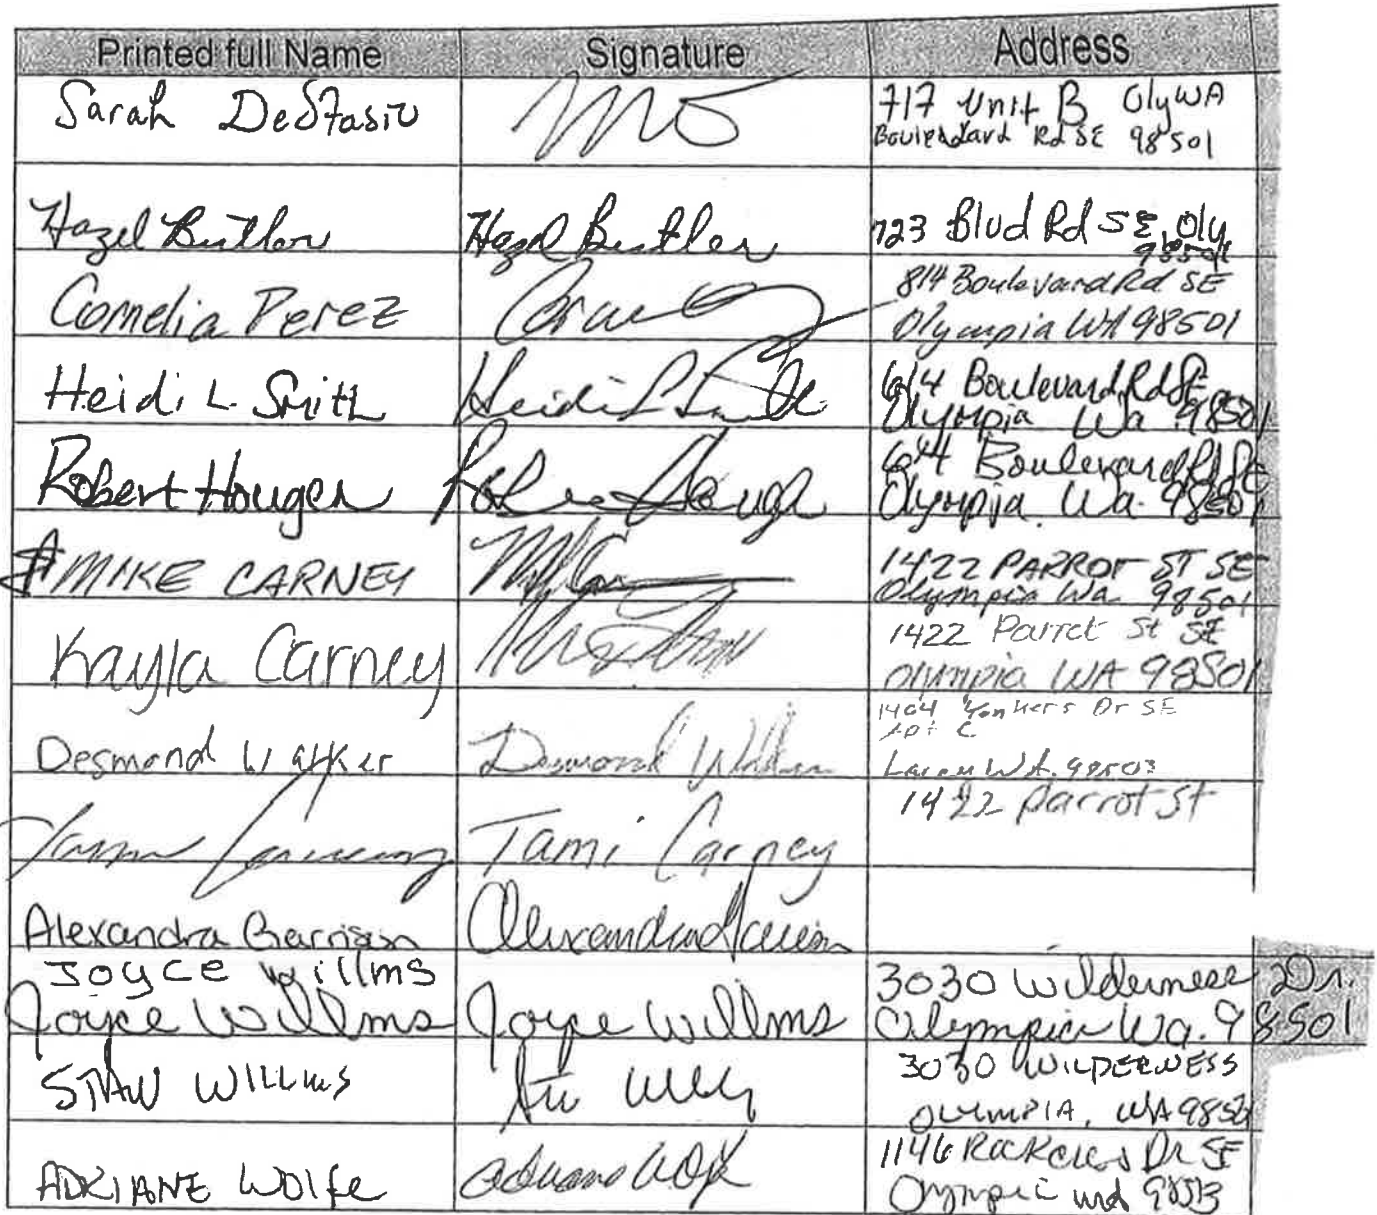 Printed full Name Signature Address
Sarah DeStasio 717 Unit B Oly WA
Boulevard Rd SE 98501
Hazel Butler Hazel Butler 723 Blvd Rd SE, Oly
98501
Cornelia Perez 814 Boulevard Rd SE
Olympia WA 98501
Heidi L. Smith Heidi L Smith 614 Boulevard Rd SE
Olympia Wa 98501
Robert Hougen 614 Boulevard Rd SE
Olympia, Wa. 98501
MIKE CARNEY 1422 PARROT ST SE
Olympia Wa 98501
Kayla Carney 1422 Parrot St SE
Olympia WA 98501
1404 Yonkers Dr SE
Desmond Walker Desmond Walker
Lacey WA. 98503
Tami Carney 1422 Parrot St
Alexandra Garrison Alexandra Garrison
Joyce Willms 3030 Wilderness Dr.
Joyce Willms Joyce Willms Olympia Wa. 98501
STAN WILLMS 3030 WILDERNESS
OLYMPIA, WA
1146 Dr SE
ADRIANE WOlfe Adriane Wolfe Olympia